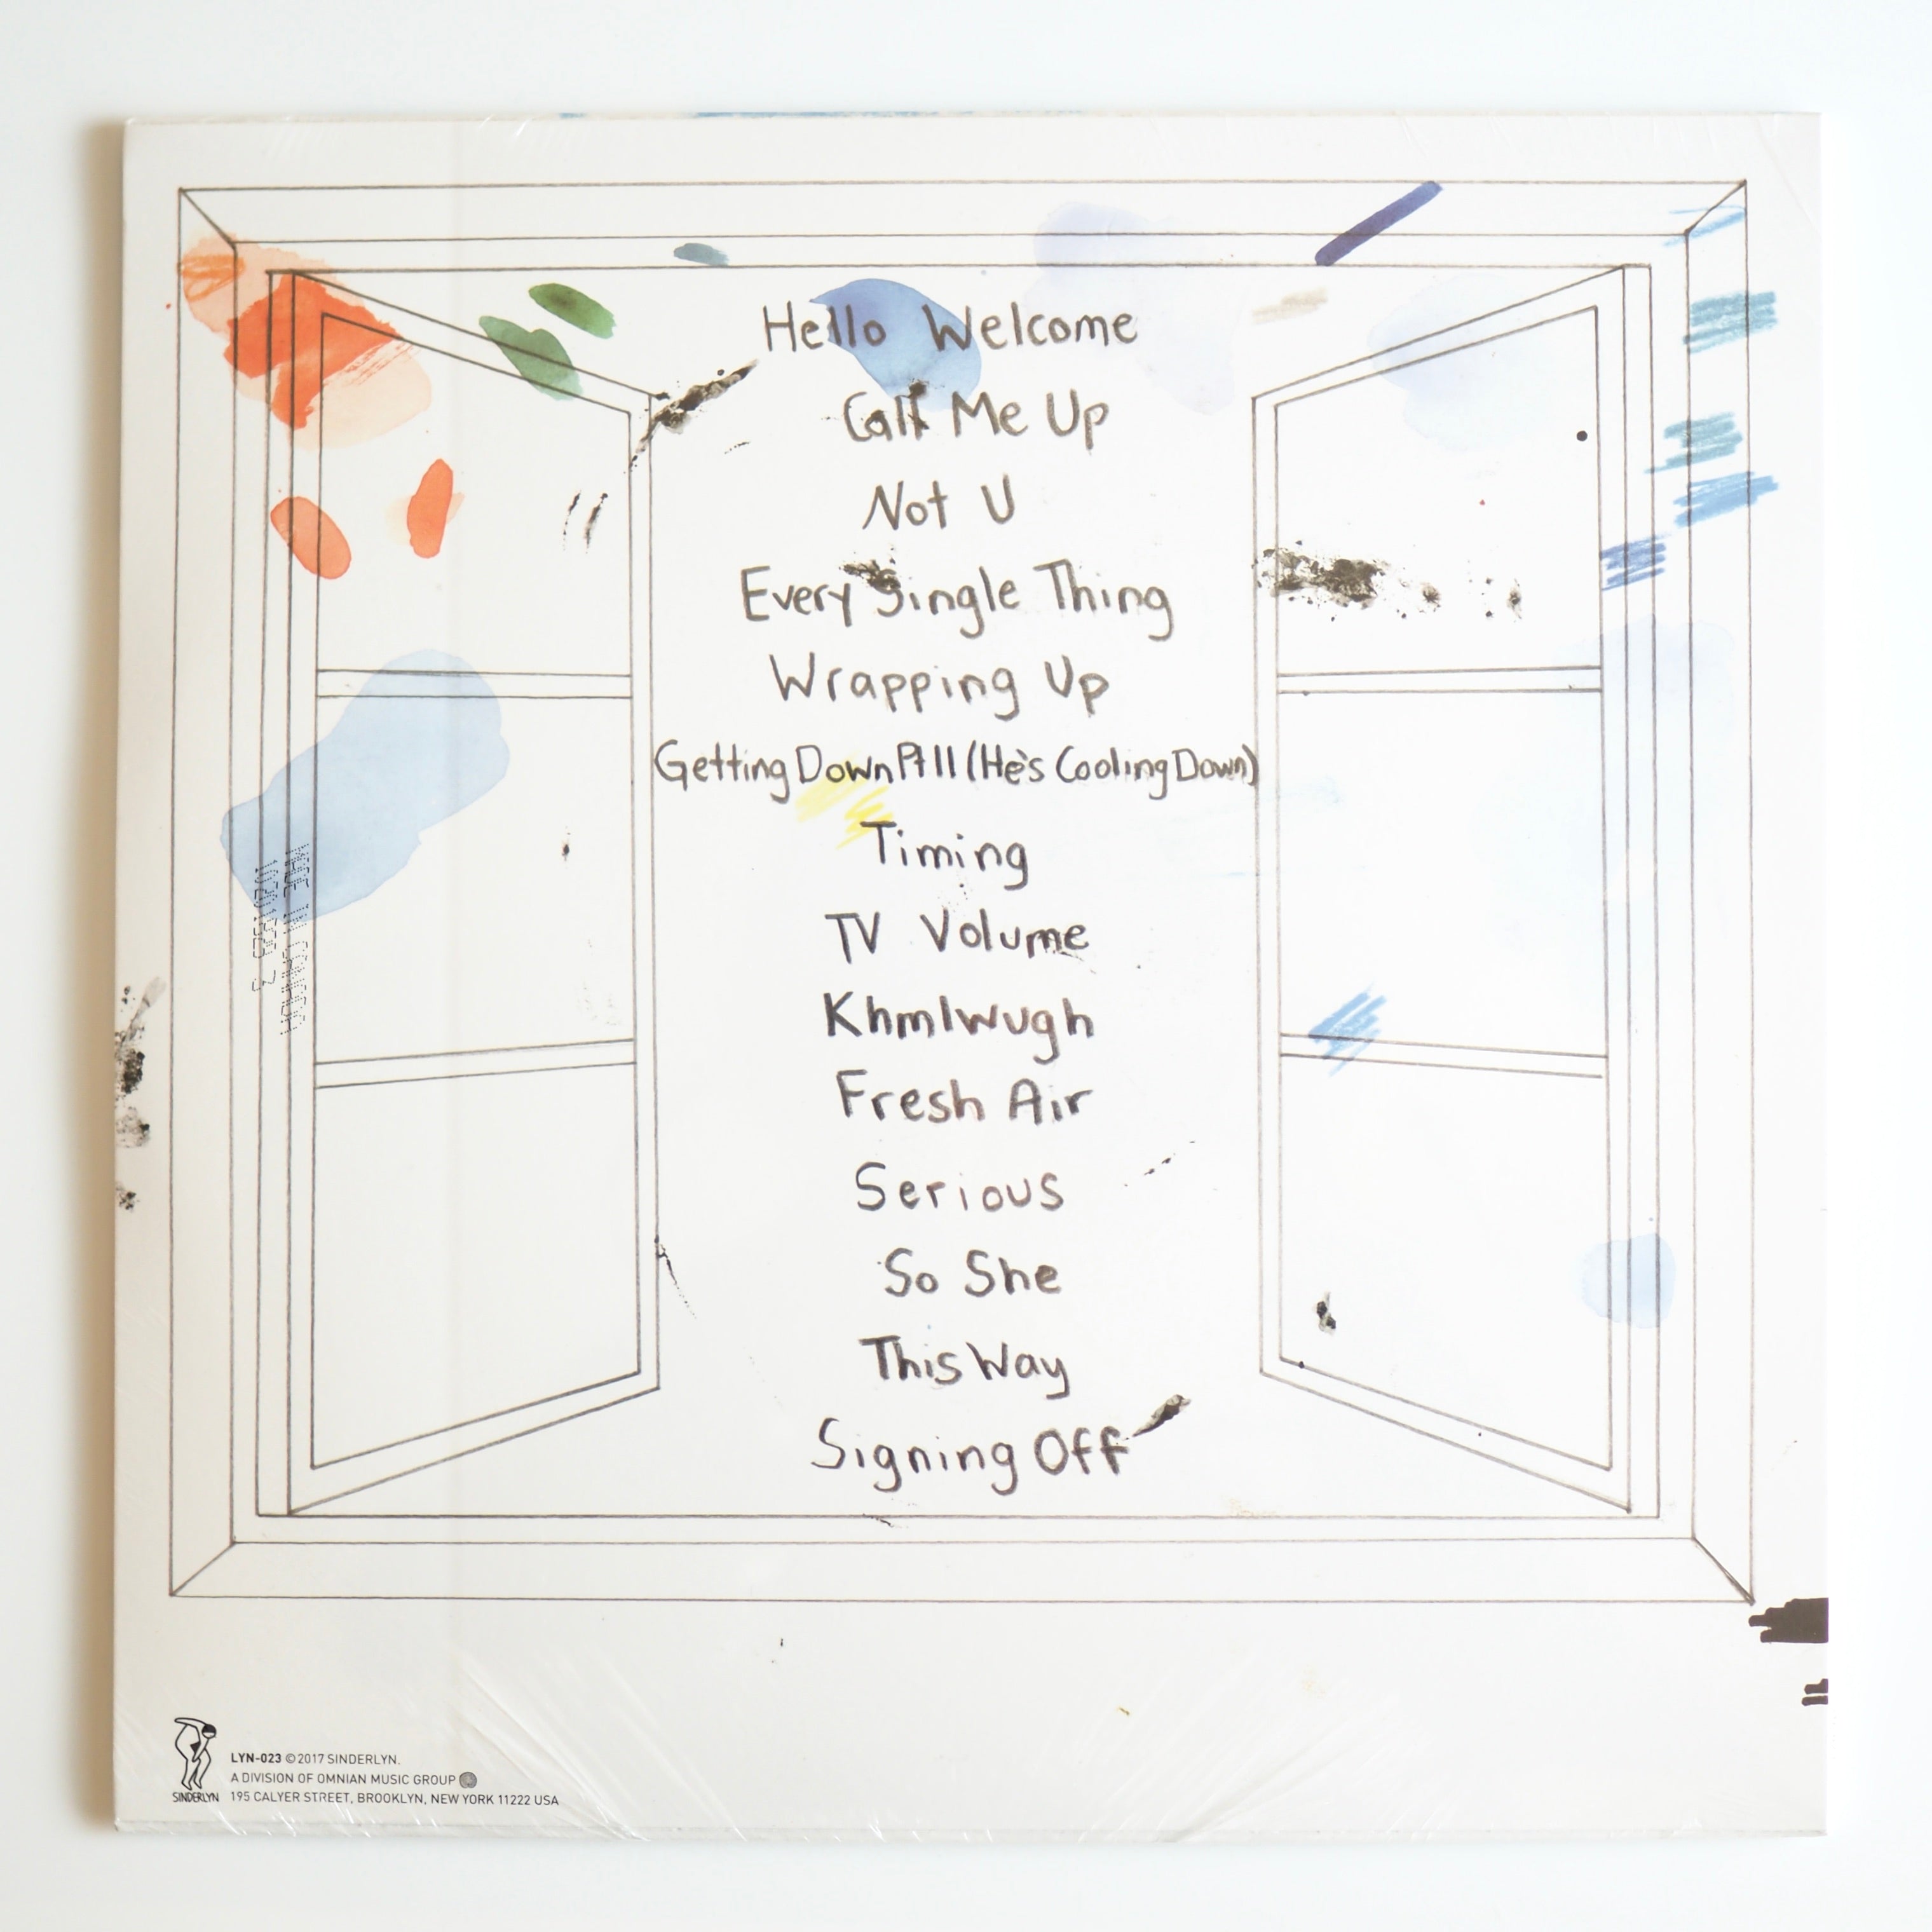 Hello Welcome
Call Me Up
Not U
Every Single Thing
Wrapping Up
Getting Down Pt II (He's Cooling Down)
Timing
TV Volume
Khmlwugh
Fresh Air
Serious
So She
This Way
Signing Off
LYN-023 ©2017 SINDERLYN.
A DIVISION OF OMNIAN MUSIC GROUP
SINDERLYN 195 CALYER STREET, BROOKLYN, NEW YORK 11222 USA